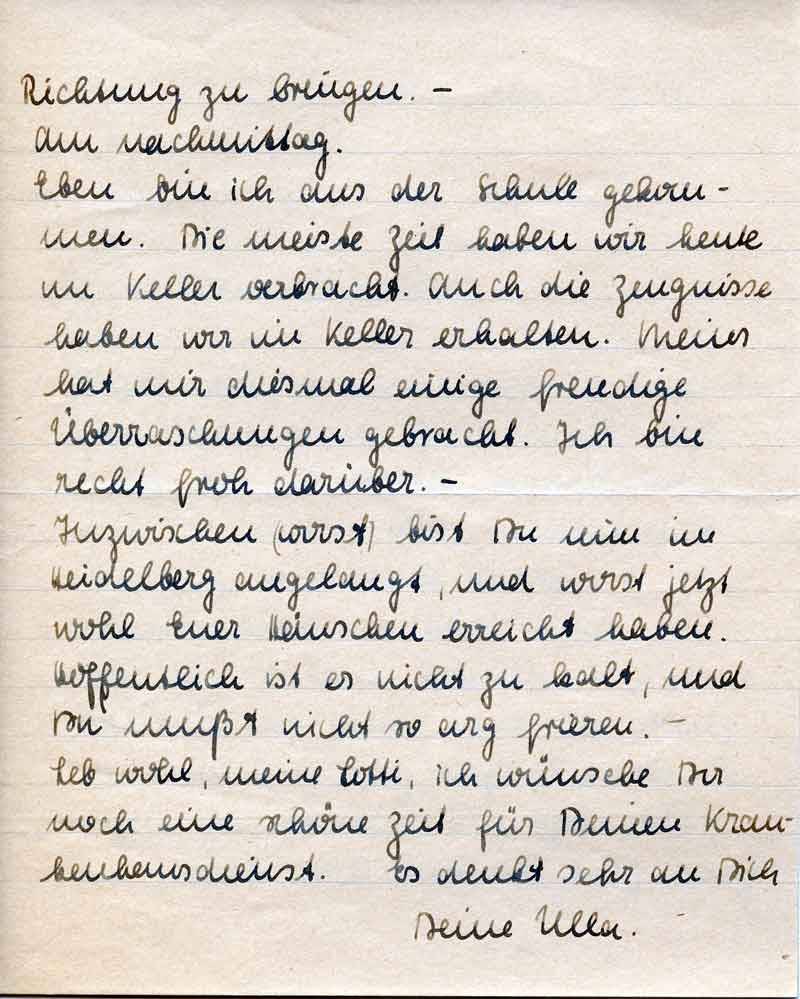 Richtung zu bringen. –
Am Nachmittag.
Eben bin ich aus der Schule gekom-
men. Die meiste Zeit haben wir heute
im Keller verbracht. Auch die Zeugnisse
haben wir im Keller erhalten. Meines
hat mir diesmal einige freudige
Überraschungen gebracht. Ich bin
recht froh darüber. –
Inzwischen (wirst) bist Du nun in
Heidelberg angelangt, und wirst jetzt
wohl Euer Häuschen erreicht haben.
Hoffentlich ist es nicht zu kalt, und
Du mußt nicht so arg frieren. –
Leb wohl, meine Lotti, ich wünsche Dir
noch eine schöne Zeit für Deinen Kran-
kenhausdienst. Es denkt sehr an Dich
Deine Ulla.